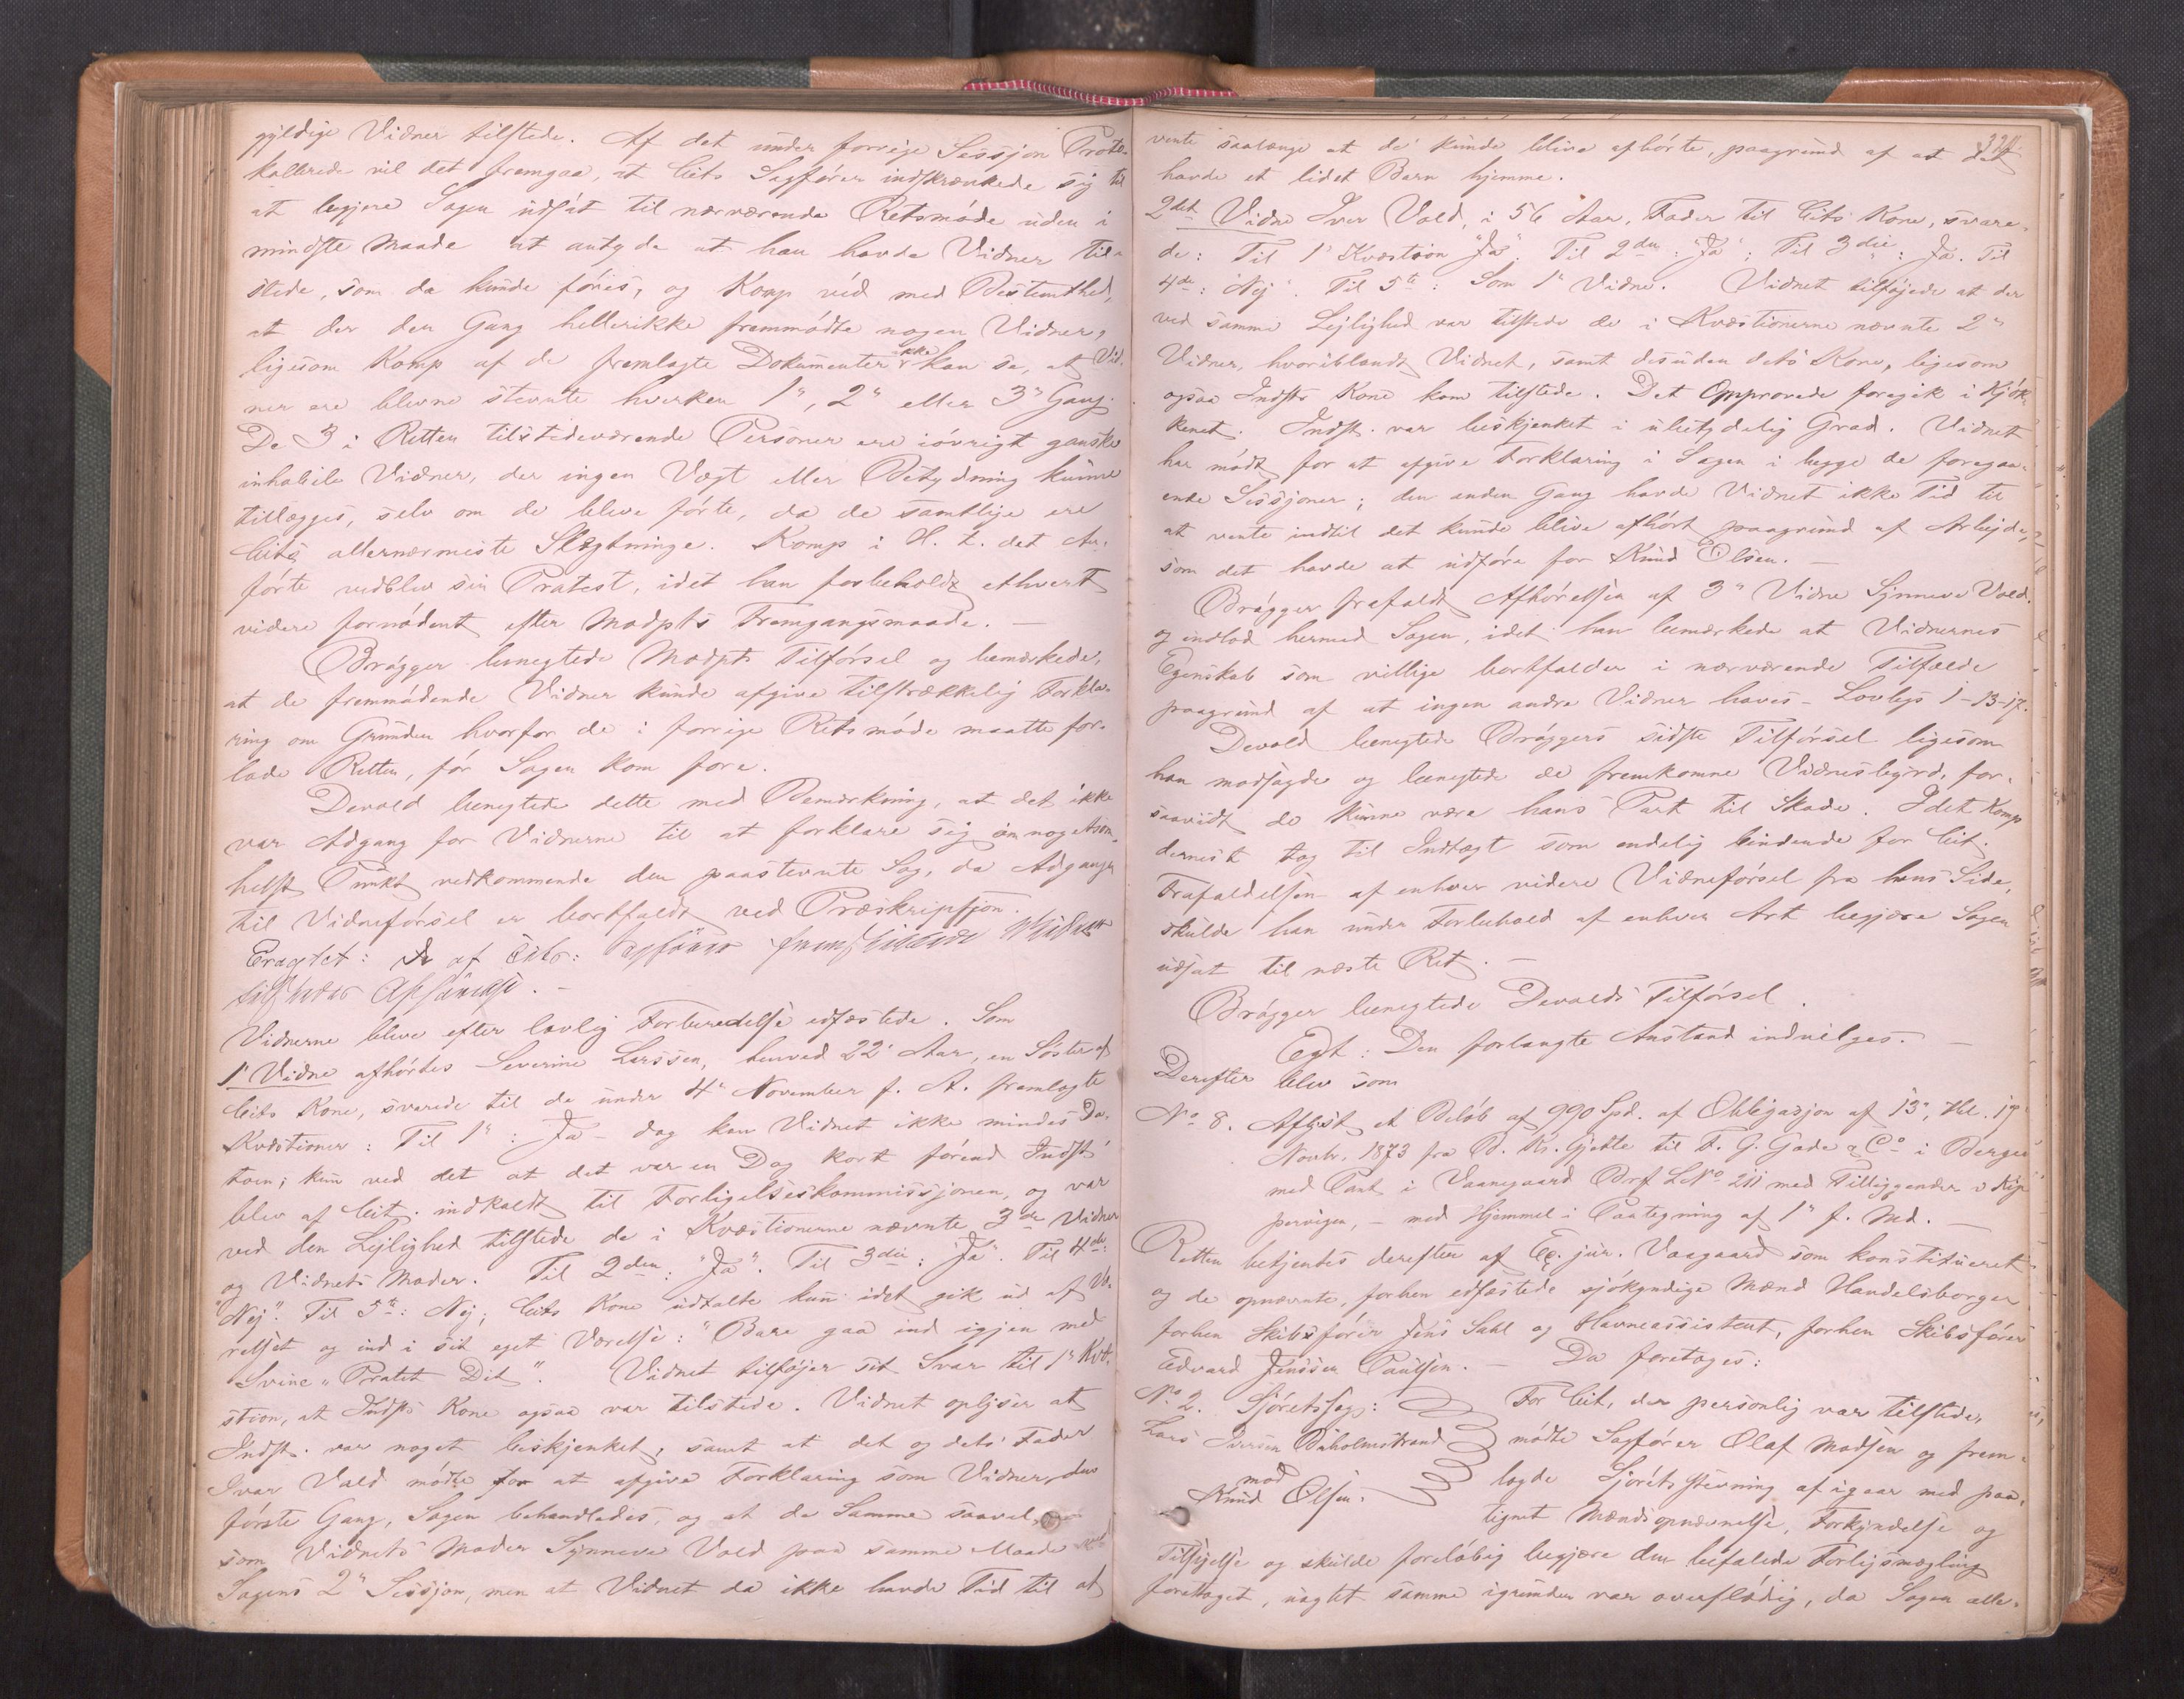 gyldige Vidner tilstede. Af det under forrige Sessjon Proto-
kollerede vil det fremgaa, at Cits Sagfører indskrænkede sig til
at begjere Sagen udsat til nærværende Retsmøde uden i
mindste Maade at antyde at han havde Vidner til-
stede, som da kunde føres, og Komp véd med Bestemthed,
at der den Gang hellerikke fremmødte nogen Vidner,
ligesom Komp af de fremlagte Dokumenter ikke kan se, at Vid-
ner ere blevne stevnte hverken 1", 2" eller 3" Gang.
De 3 i Retten tilstedeværende Personer ere iøvrigt ganske
inhabile Vidner, der ingen Vægt eller Betydning kunne
tillægges, selv om de bleve førte, da de samtlige ere
Cits allernærmeste Slægtninge. Komp i H. t. det An-
førte vedblev sin Protest, idet han forbeholdt ethvert
videre fornødent efter Modpts Fremgangsmaade. —
Brøgger benegtede Modpts Tilførsel og bemærkede,
at de fremmødende Vidner kunde afgive tilstrækkelig Forkla-
ring om Grunden hvorfor de i forrige Retsmøde maatte for-
lade Retten, før Sagen kom fore.
Devold benegtede dette med Bemærkning, at det ikke
var Adgang for Vidnerne til at forklare sig om nogetsom-
helst Punkt vedkommende den paastevnte Sag, da Adgangen
til Vidneførsel er bortfaldt ved Præskripsjon.
Eragtet: De af Cits: Sagfører fremstillede Vidner
tilstedes Afhørelse. —
Vidnerne bleve efter lovlig Forberedelse edfæstede. Som
1" Vidne afhørtes Severine Larssen, henved 22 Aar, en Søster af
Cits Kone, svarede til de under 4" November f. A. fremlagte
Kvæstioner: Til 1": Ja – dog kan Vidnet ikke mindes Da-
toen; kun ved det at det var en Dag kort førend Indst.
blev af Cit. indkaldt til Forligelseskommissjonen, og var
ved den Lejlighed tilstede de i Kvæstionerne nævnte 3de Vidner
og Vidnets Moder. Til 2den: "Ja". Til 3die: "Ja". Til 4de:
"Nej". Til 5te: Nej; Cits Kone udtalte kun idet gik ud af Væ-
relset og ind i sit eget Værelse: "Bare gaa ind igjen med
Svine "Pratet Dit". Vidnet tilføjer sit Svar til 1" Kvæ-
stion, at Indsts Kone ogsaa var tilstede. Vidnet oplyser at
Indst. var noget beskjenket, samt at det og dets Fader
Ivar Vold mødte for at afgive Forklaring som Vidner den
første Gang, Sagen behandledes, og at de Samme saavel
som Vidnets Moder Synneve Vold paa samme Maade
Sagens 2" Sessjon, men at Vidnet da ikke havde Tid til at
vente saalænge at de kunde blive afhørte, paagrund af at det
havde et lidet Barn hjemme.
2det Vidne Iver Vold, i 56 Aar, Fader til Cits Kone, svare-
de: Til 1" Kvæstion "Ja". Til 2den: "Ja"; Til 3die: Ja. Til
4de: "Nej". Til 5te: Som 1" Vidne. Vidnet tilføjede at der
ved samme Lejlighed var tilstede de i Kvæstionerne nævnte 2"
Vidner, hvoriblandt Vidnet, samt desuden dets Kone, ligesom
ogsaa Indsts Kone kom tilstede. Det Opprovede foregik i Kjøk-
kenet. Indst. var beskjenket i ubetydelig Grad. Vidnet
har mødt for at afgive Forklaring i Sagen i begge de foregaa-
ende Sessjoner; den anden Gang havde Vidnet ikke Tid til
at vente indtil det kunde blive afhørt paagrund af Arbejde,
som det havde at udføre for Knud Olsen. —
Brøgger frafaldt Afhørelsen af 3" Vidne Synneve Vold
og endlod hermed Sagen, idet han bemærkede at Vidnernes
Egenskab som villige bortfalder i nærværende Tilfælde
paagrund af at ingen andre Vidner haves – Lovbgs 1–13–17.
Devold benegtede Brøggers sidste Tilførsel ligesom
han modsagde og benegtede de fremkomne Vidnesbyrd, for-
saavidt de kunne være hans Part til Skade. Idet Komp
dernest tog til Indtægt som endelig bindende for Cit.
Frafaldelsen af enhver videre Vidneførsel fra hans Side,
skulde han under Forbehold af enhver Art begjære Sagen
udsat til næste Ret. —
Brøgger benegtede Devolds Tilførsel.
Egt: Den forlangte Anstand indvilges. —
Derefter blev som
No 8. Aflyst et Beløb af 990 Spd. af Obligasjon af 13", thl. 19"
Novbr. 1873 fra B. Kr. Gjette til F. G. Gade & Co i Bergen
med Pant i Vaanegaard Brf LNo 211 med Tilliggender i Kip-
pervigen, – med Hjemmel i Paategning af 1" f. Md. —
Retten betjentes derefter af Ex. jur. Vaagaard som konstitueret
og de opnævnte, forhen edfæstede sjøkyndige Mænd Handelsborger
forhen Skibsfører Jens Dahl og Havneassistent, forhen Skibsfører
Edvard Jenssen Paulsen. — Da foretoges:
No 2. Sjøretssag:
Lars Iversen Baholmstrand
mod
Knud Olsen.
For Cit, der personlig var tilstede,
mødte Sagfører Olaf Madsen og frem-
lagde Sjørets stevning af igaar med paa-
tegnet Mændsopnævnelse, Forkyndelse og
Tilsigelse og skulde foreløbig begjære den befalede Forligsmægling
foretaget, uagtet samme igrunden var overflødig, da Sagen alle-